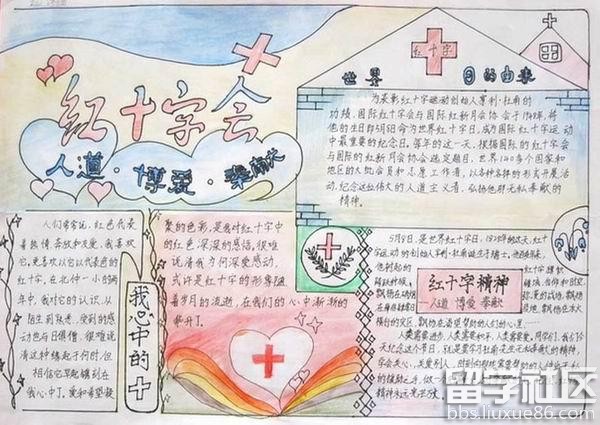 红十字会
人道·博爱·奉献
世界红十字日的由来
为表彰红十字运动创始人亨利·杜南的
功绩,国际红十字会与国际红新月会协会于1948年,将
他的生日即5月8日命为世界红十字日,成为国际红十字运动
中最重要的纪念日。每年的这一天,根据国际的红十字会
与国际的红新月会协会选定题目,世界
国家和
地区的大批会员和志愿工作者,以各种各样的形式开展活
动,纪念这位伟大的人道主义者,弘扬他那无私奉献的
精神。
人们常常说,红色代表
着热情、奔放和关爱,我喜欢
它,更喜欢以它以代表色的
红十字,在北仲一小的两
年中,我对它的认识,从
陌生到熟悉,受到的感
动也与日俱增,很难说
清这种缘起于何时,但
相信它早起镶刻在
我心中了。爱和希望凝
聚的色彩,是我对红十字中
的红色,深深的感悟,很难
说清我为何深受感动,
或许是红十字的形象随
着岁月的流逝,在我们的心中渐渐的
升了。
我心中的十
5月8日,是世界红十字日,
的这天,红十字
运动的创始人亨利·杜南诞生于瑞士,
红十字精神
人道 博爱 奉献
横行的灾区,飘扬在渴望帮助的人们的心里……
人类需要进步,人类需要和平,人类需要关爱。同学们,我们今
天纪念这个节日,就是要学习杜南先生无私奉献的精神,
学会关心,关爱别人,
留学社区
bbs.liuxue86.com